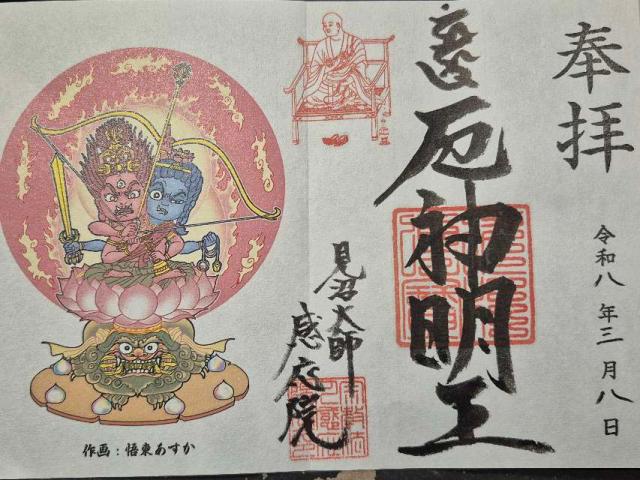 奉拝
令和八年三月八日
厄神明王
見沼大師
感応院
作画：悟東あすか